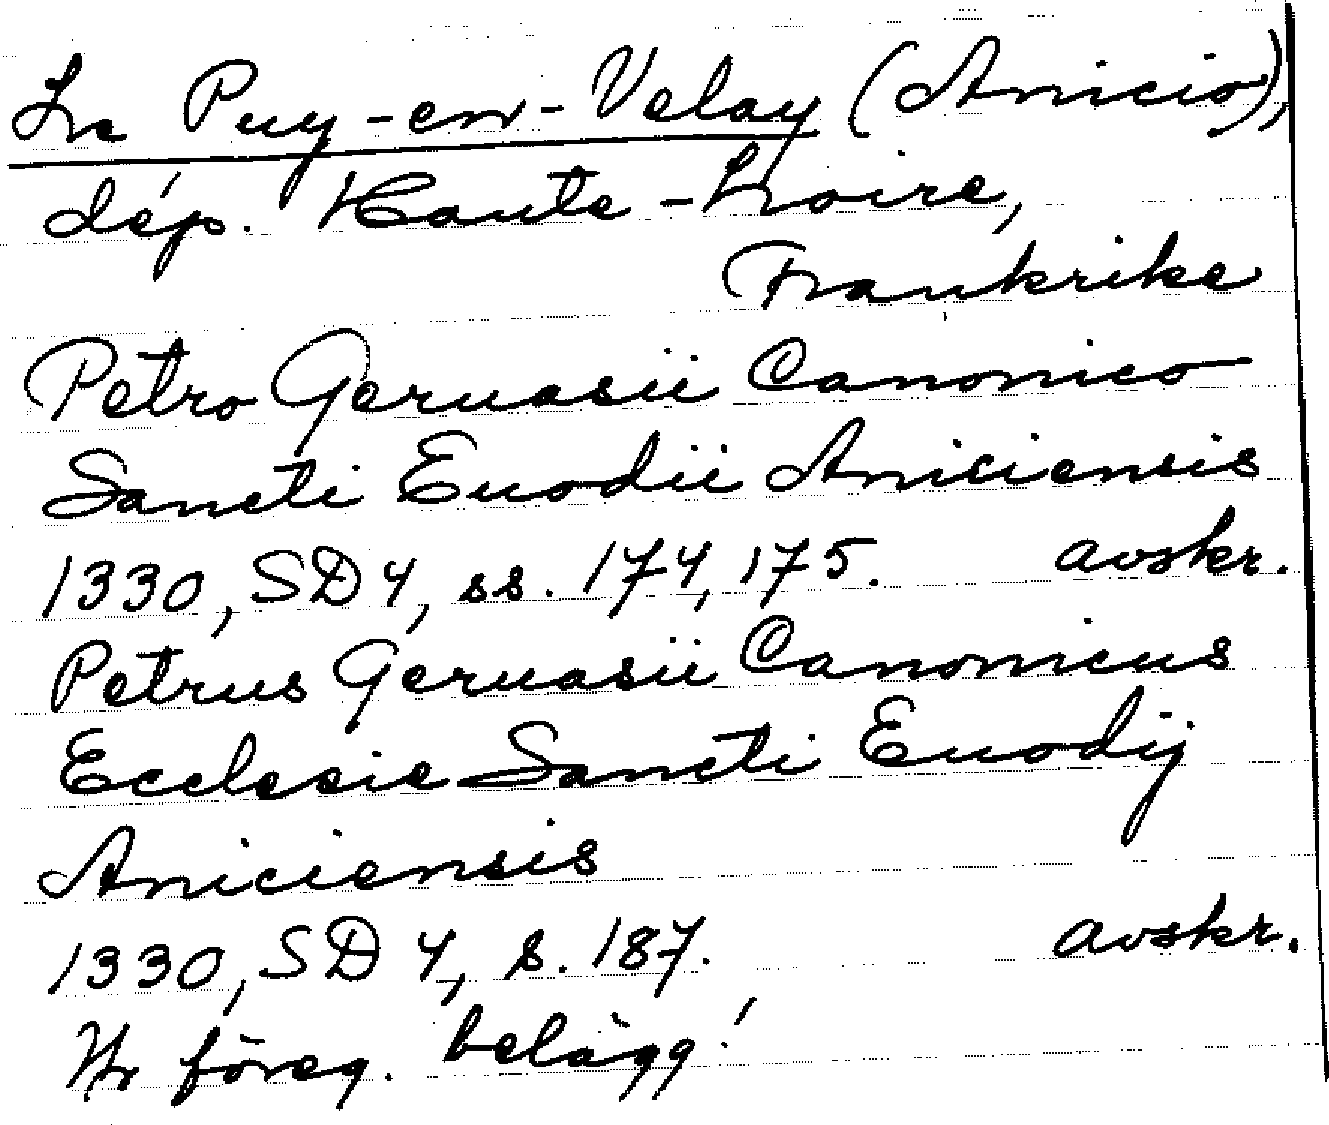 Le Puy-en-Velay (Anicio),
dép. Haute-Loire,
Frankrike
Petro Geruasii Canonico
Sancti Euodii Aniciensis
1330, SD 4, ss. 174, 175. avskr.
Petrus Geruasii Canonicus
Ecclesie Sancti Euodij
Aniciensis
1330, SD 4, s. 187. avskr.
Hr föreg. belägg!